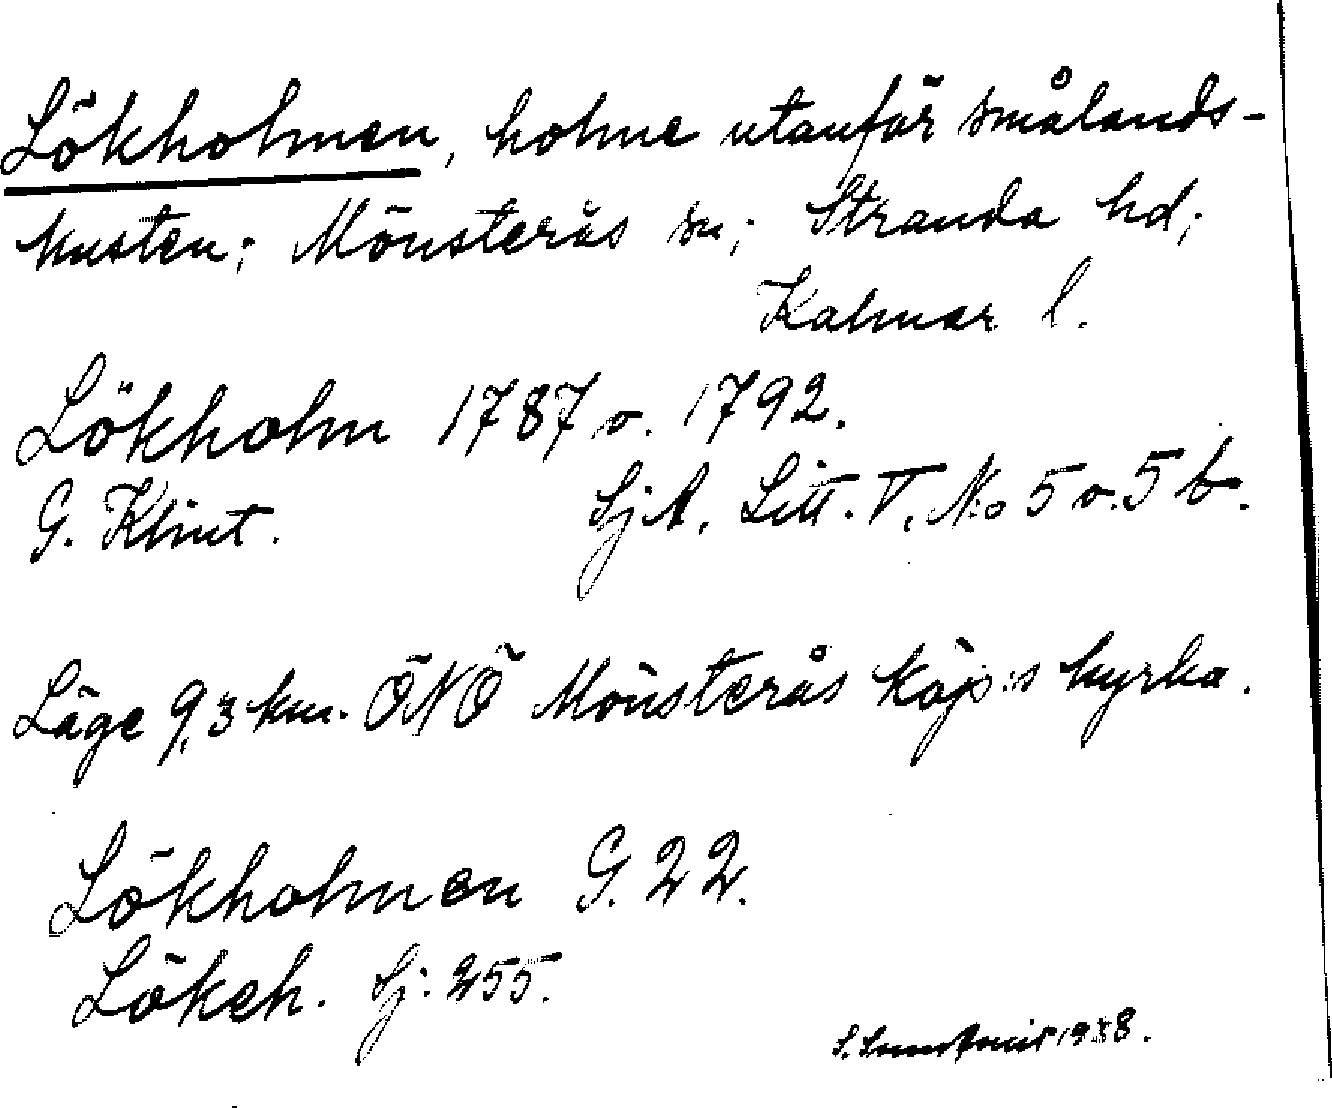 Lökholmen, holme utanför smålands-
kusten; Mönsterås sn; Stranda hd;
Kalmar l.
Lökholm 1787 o. 1792.
G. Klint. SjA. Litt. V. No 5 o. 5 b.
Läge 9,3 km. ÖNÖ Mönsterås köp:s kyrka.
Lökholmen G. 22.
Lökeh. Sj. 255.
S. 1938.